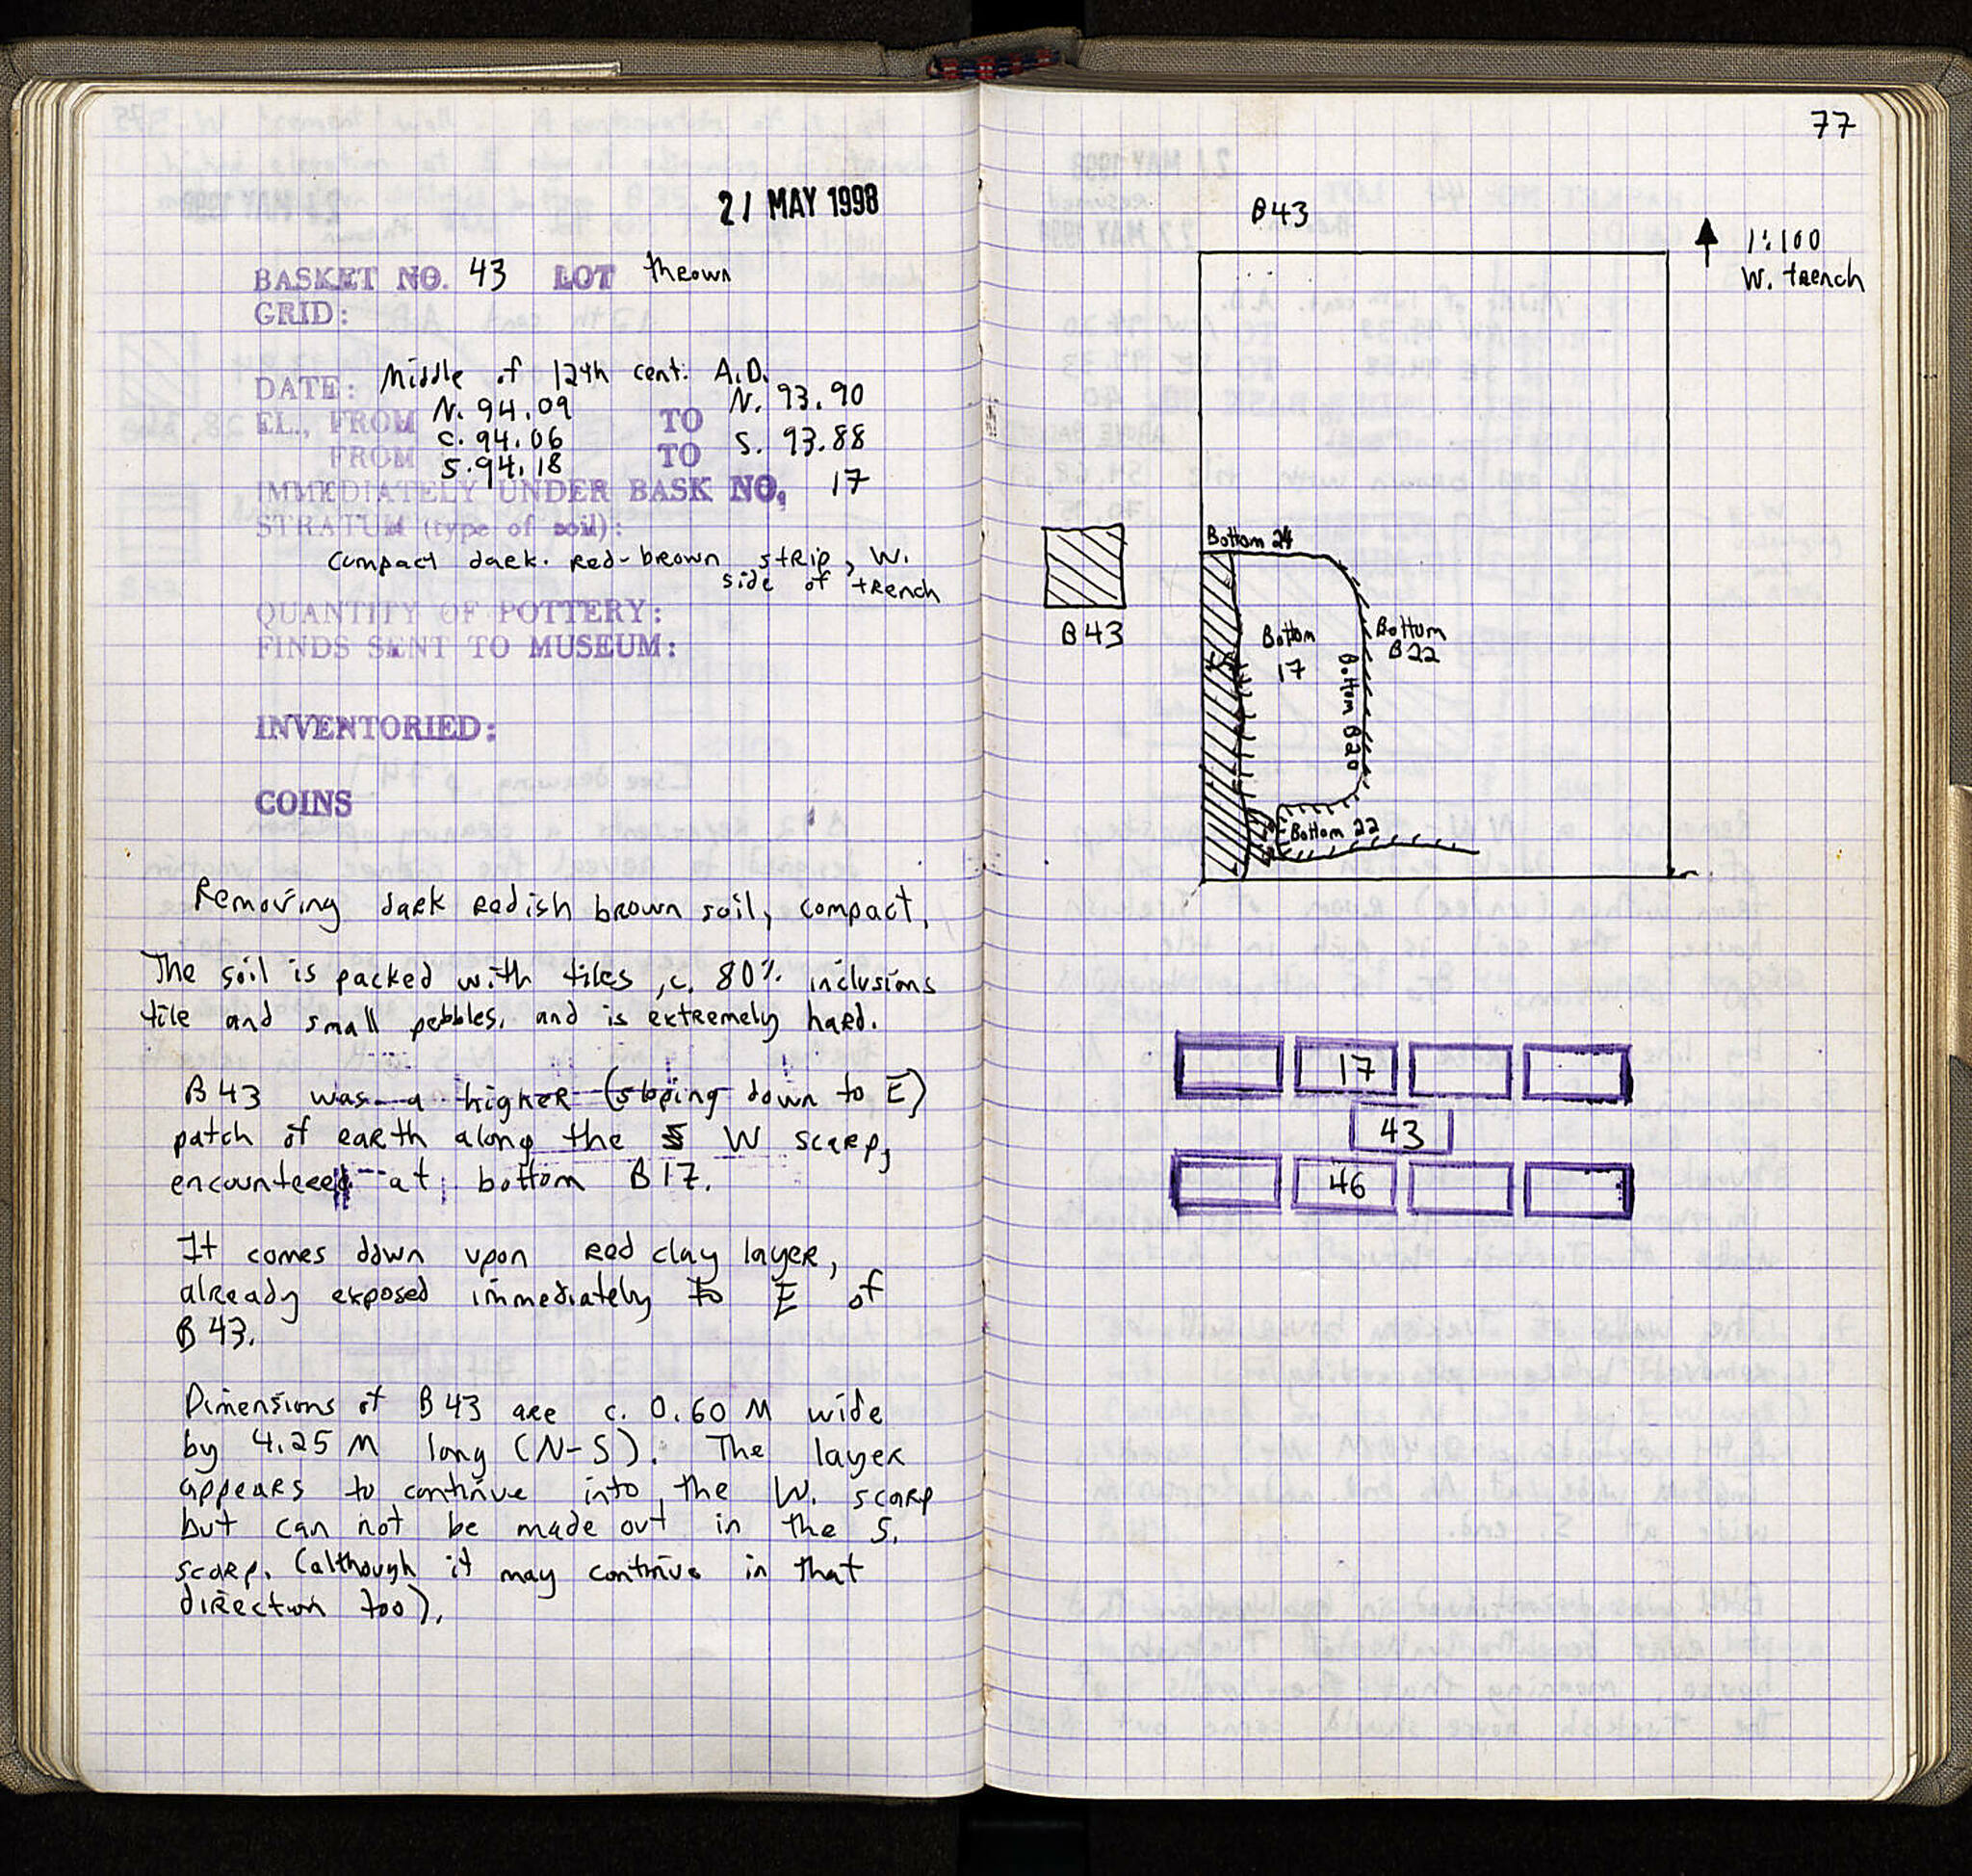 21 MAY 1998
BASKET NO. 43 LOT thrown
GRID:
DATE: Middle of 12th cent: A.D.
EL., FROM N. 94.09 TO N. 93.90
c. 94.06 S. 93.88
FROM S. 94.18 TO
IMMEDIATELY UNDER BASK NO, 17
STRATUM (type of soil):
Compact dark. red-brown strip, W.
side of trench
QUANTITY OF POTTERY:
FINDS SENT TO MUSEUM:
INVENTORIED:
COINS
Removing dark redish brown soil, compact,
The soil is packed with tiles, c. 80% inclusions
tile and small pebbles, and is extremely hard.
B43 was a higher (sloping down to E)
patch of earth along the W scarp,
encountered at bottom B17.
It comes down upon red clay layer,
already exposed immediately to E of
B43.
Dimensions of B43 are c. 0.60 M wide
by 4.25 M long (N-S). The layer
appears to continue into the W. scarp
but can not be made out in the S.
scarp. (although it may continue in that
direction too).
77
B43
1:100
W. trench
Bottom 24
B43
Bottom
17
Bottom B20
Bottom
B22
Bottom 22
17
43
46